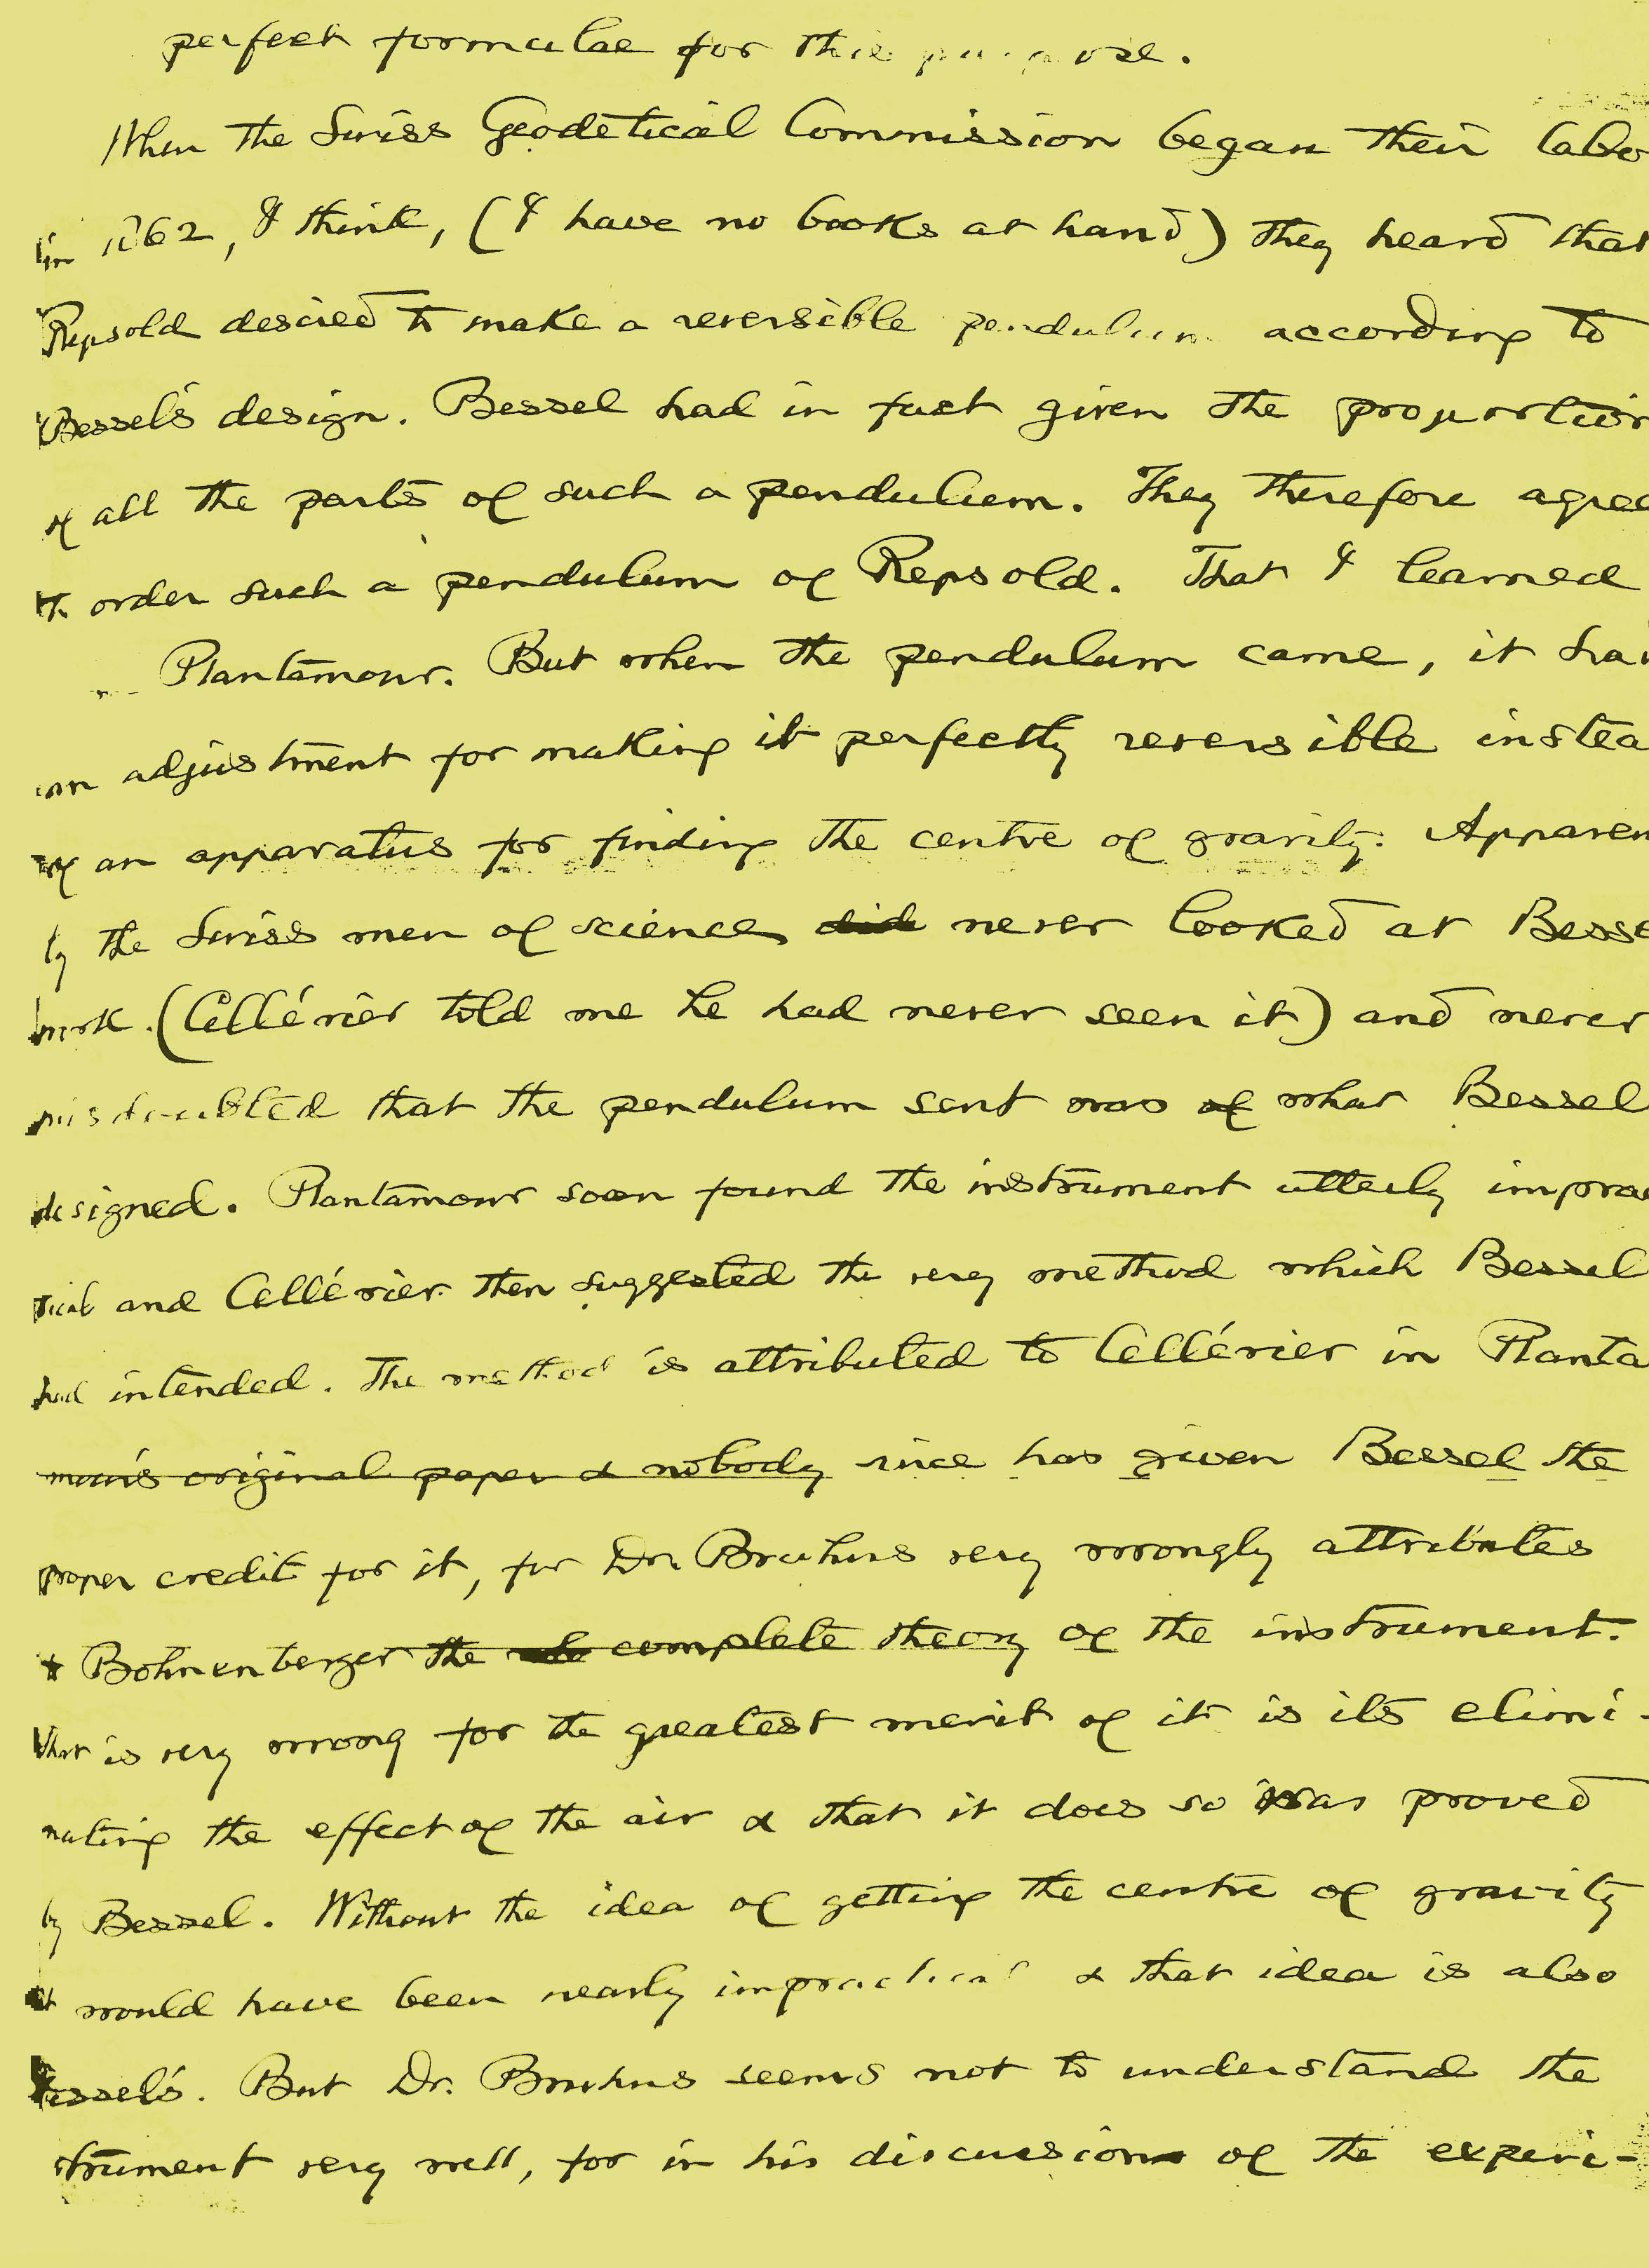 perfect formulae for this purpose.
When the Swiss Geodetical Commission began their labo
in 1862, I think, (I have no books at hand) they heard that
Repsold desired to make a reversible pendulum according to
Bessel's design. Bessel had in fact given the proportion
of all the parts of such a pendulum. They therefore agree
to order such a pendulum of Repsold. That I learned
Plantamour. But when the pendulum came, it had
an adjustment for making it perfectly reversible instea
of an apparatus for finding the centre of gravity. Apparen
ly the Swiss men of science did never looked at Besse
work. (Cellérier told me he had never seen it) and never
misdoubted that the pendulum sent was of what Bessel
designed. Plantamour soon found the instrument utterly imprac
tical and Cellérier then suggested the very method which Bessel
had intended. The method is attributed to Cellérier in Planta
mour's original paper & nobody since has given Bessel the
proper credit for it, for Dr. Bruhns very wrongly attributes
to Bohnenberger the complete theory of the instrument.
that is very wrong for the greatest merit of it is its elimi-
nating the effect of the air & that it does so was proved
by Bessel. Without the idea of getting the centre of gravity
it would have been nearly impractical & that idea is also
Bessel's. But Dr. Bruhns seems not to understand the
strument very well, for in his discussion of the experi-